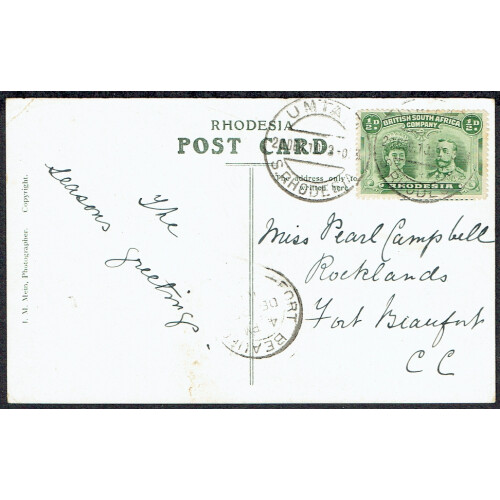 RHODESIA
POST CARD
The address only to
written here
I. M. Mein, Photographer. Copyright.
The
Seasons
Greetings
Miss Pearl Campbell
Rocklands
Fort Beaufort
CC
½D.
BRITISH SOUTH AFRICA
COMPANY.
½D.
RHODESIA
UMTA
S.RHODE
FORT
DE
BEAUF